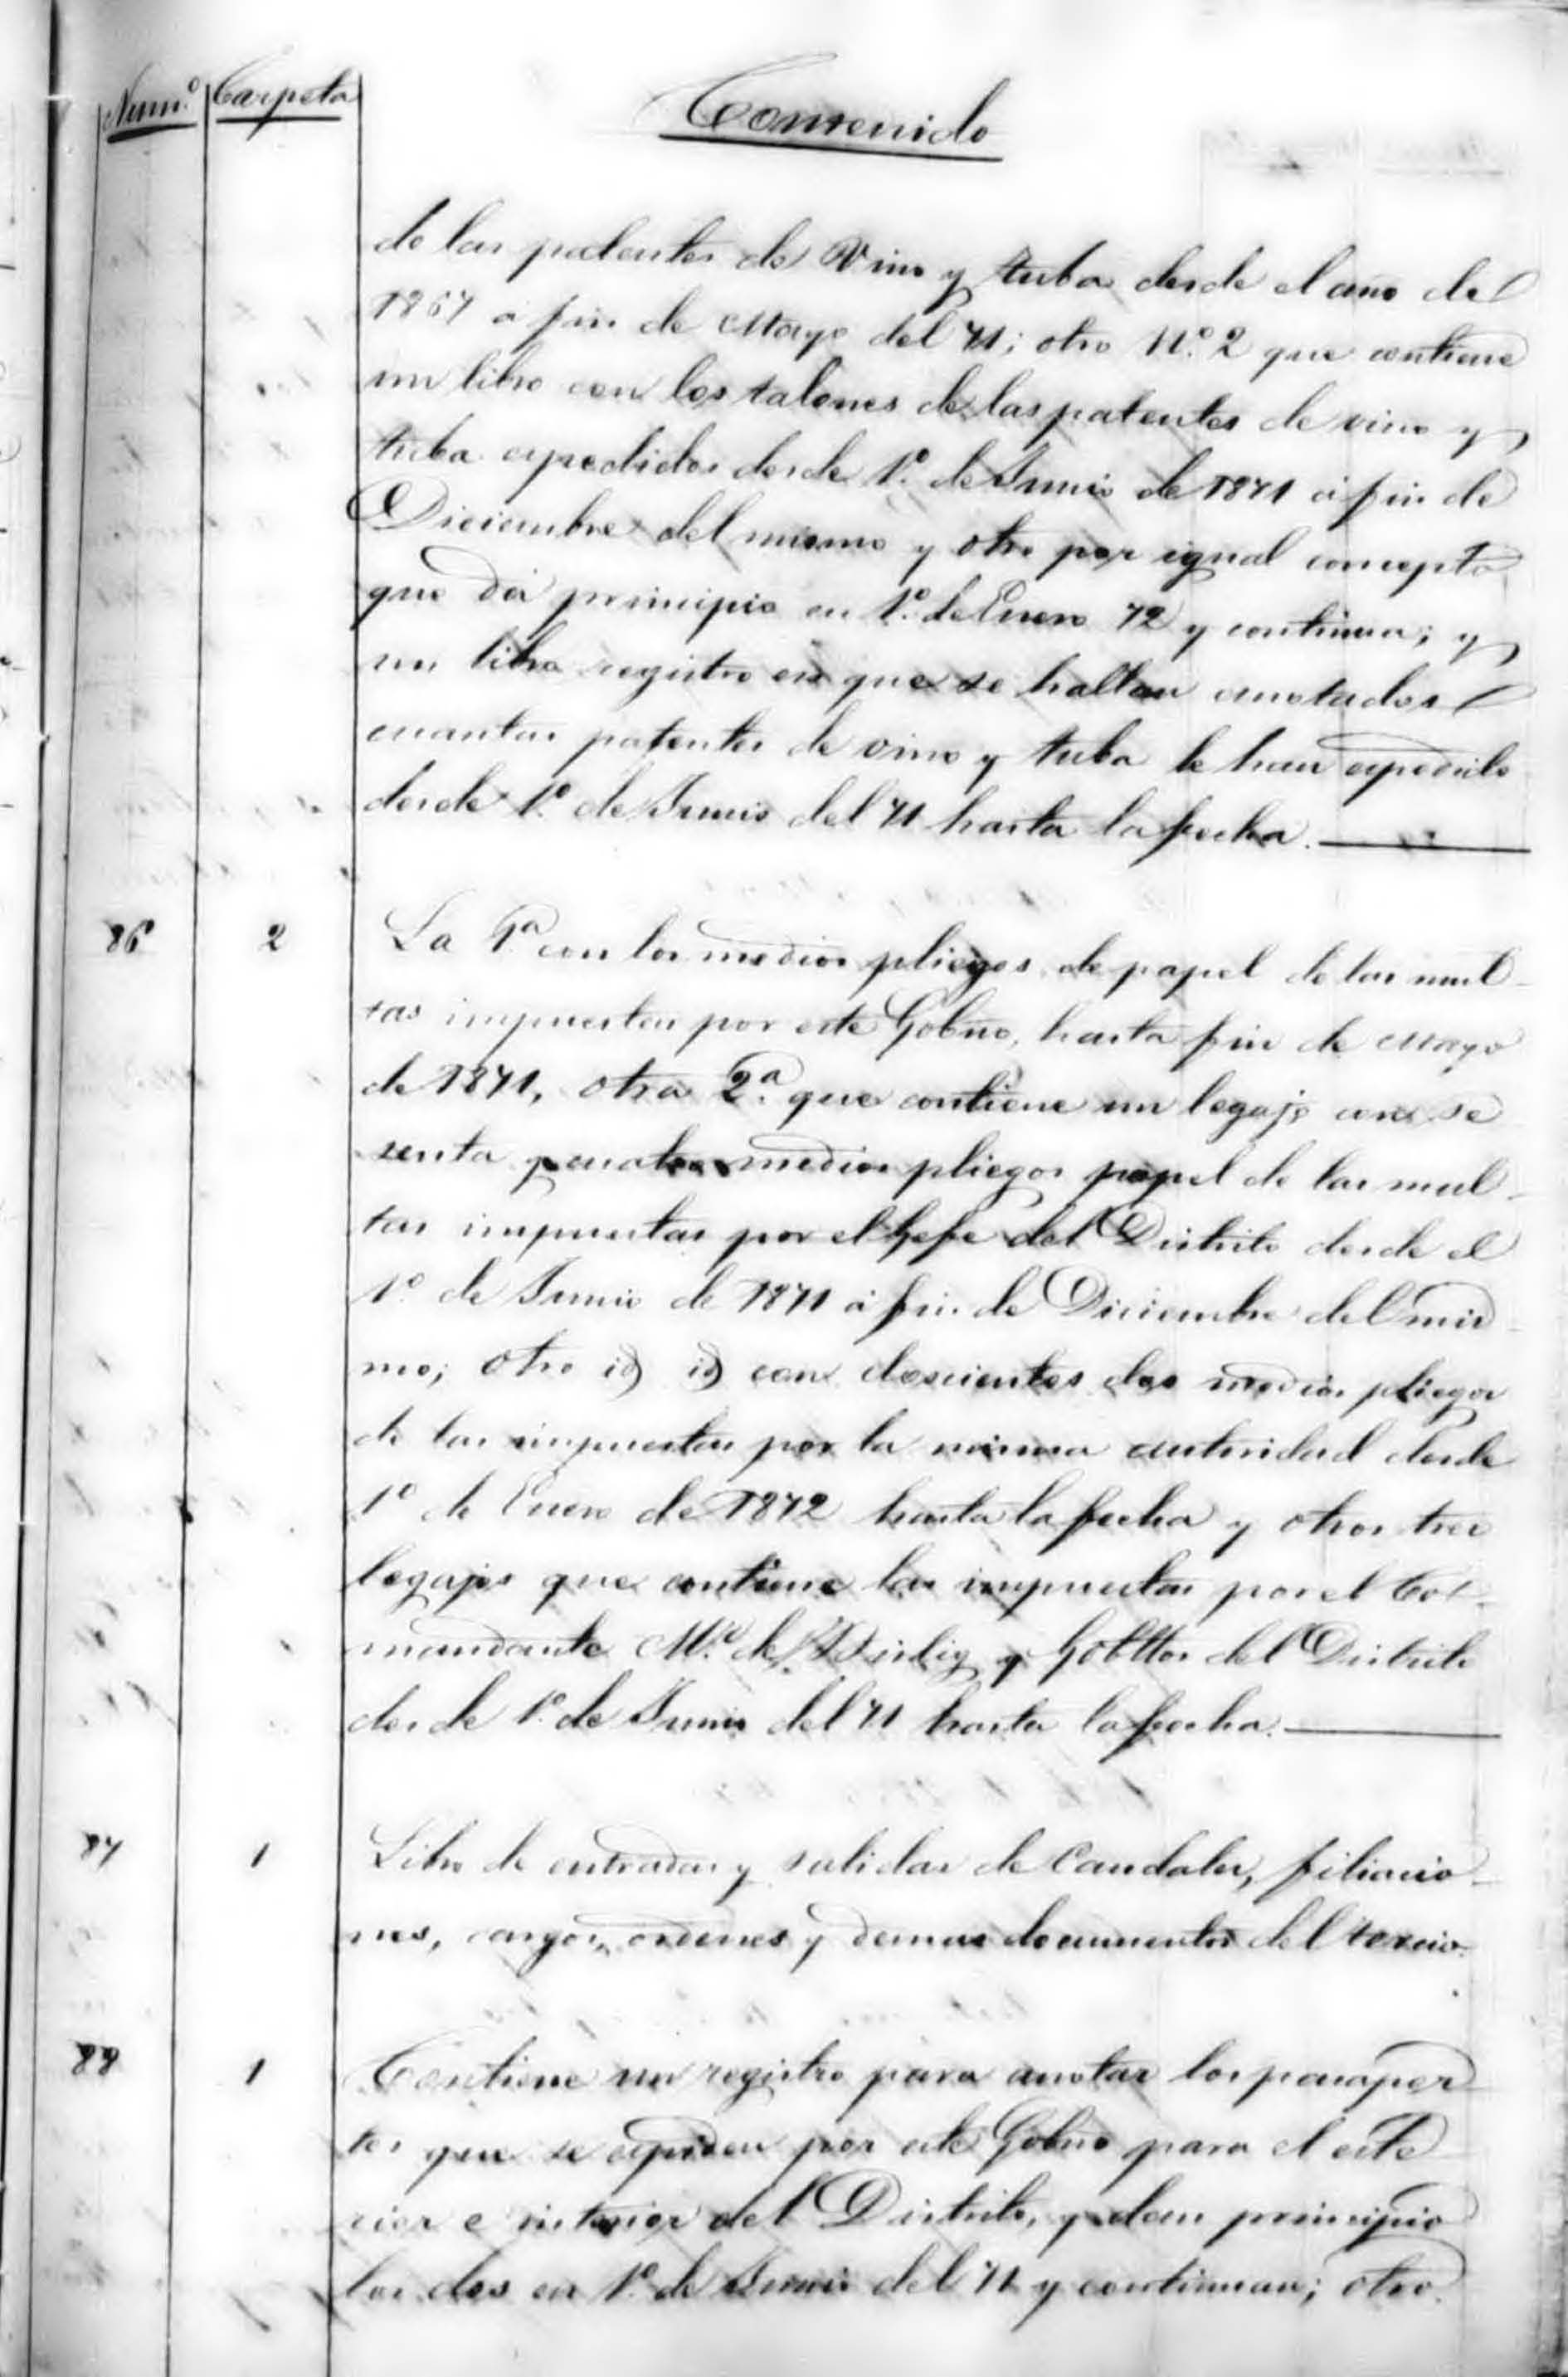 Num.º Carpeta Contenido
de las patentes de Vino y tuba desde el año del
1867 a fin de Mayo del 71; otro N.º 2 que contiene
un libro con los talones de las patentes de vino y
tuba expedidos desde 1.º de Junio de 1871 á fin de
Diciembre del mismo y otro por igual concepto
que dá principio en 1.º de Enero 72 y continua; y
un libro registro en que se hallan anotados
cuantas patentes de vino y tuba se han expedido
desde 1.º de Junio del 71 hasta la fecha.
86 2 La 1.ª con los medios pliegos de papel de las mul-
tas impuestas por este Gobno, hasta fin de Mayo
de 1871, otra 2.ª que contiene un legajo con se
senta y cuatro medios pliegos papel de las mul-
tas impuestas por el Gefe del Distrito desde el
1.º de Junio de 1871 á fin de Diciembre del mis-
mo; otro id id con doscientos dos medios pliegos
de las impuestas por la misma autoridad desde
1.º de Enero de 1872 hasta la fecha y otros tres
legajos que contiene las impuestas por el Co-
mandante M.º de y Gobttos del Distrito
desde 1.º de Junio del 71 hasta la fecha.
87 1 Libro de entradas y salidas de Caudales, filiacio-
nes, cargos, ordenes y demas documentos del tercio.
88 1 Contiene un registro para anotar los pasapor-
tes que se expiden por este Gobno para el este
rior e interior del Distrito, y dan principio
los dos en 1.º de Junio del 71 y continuan; otro